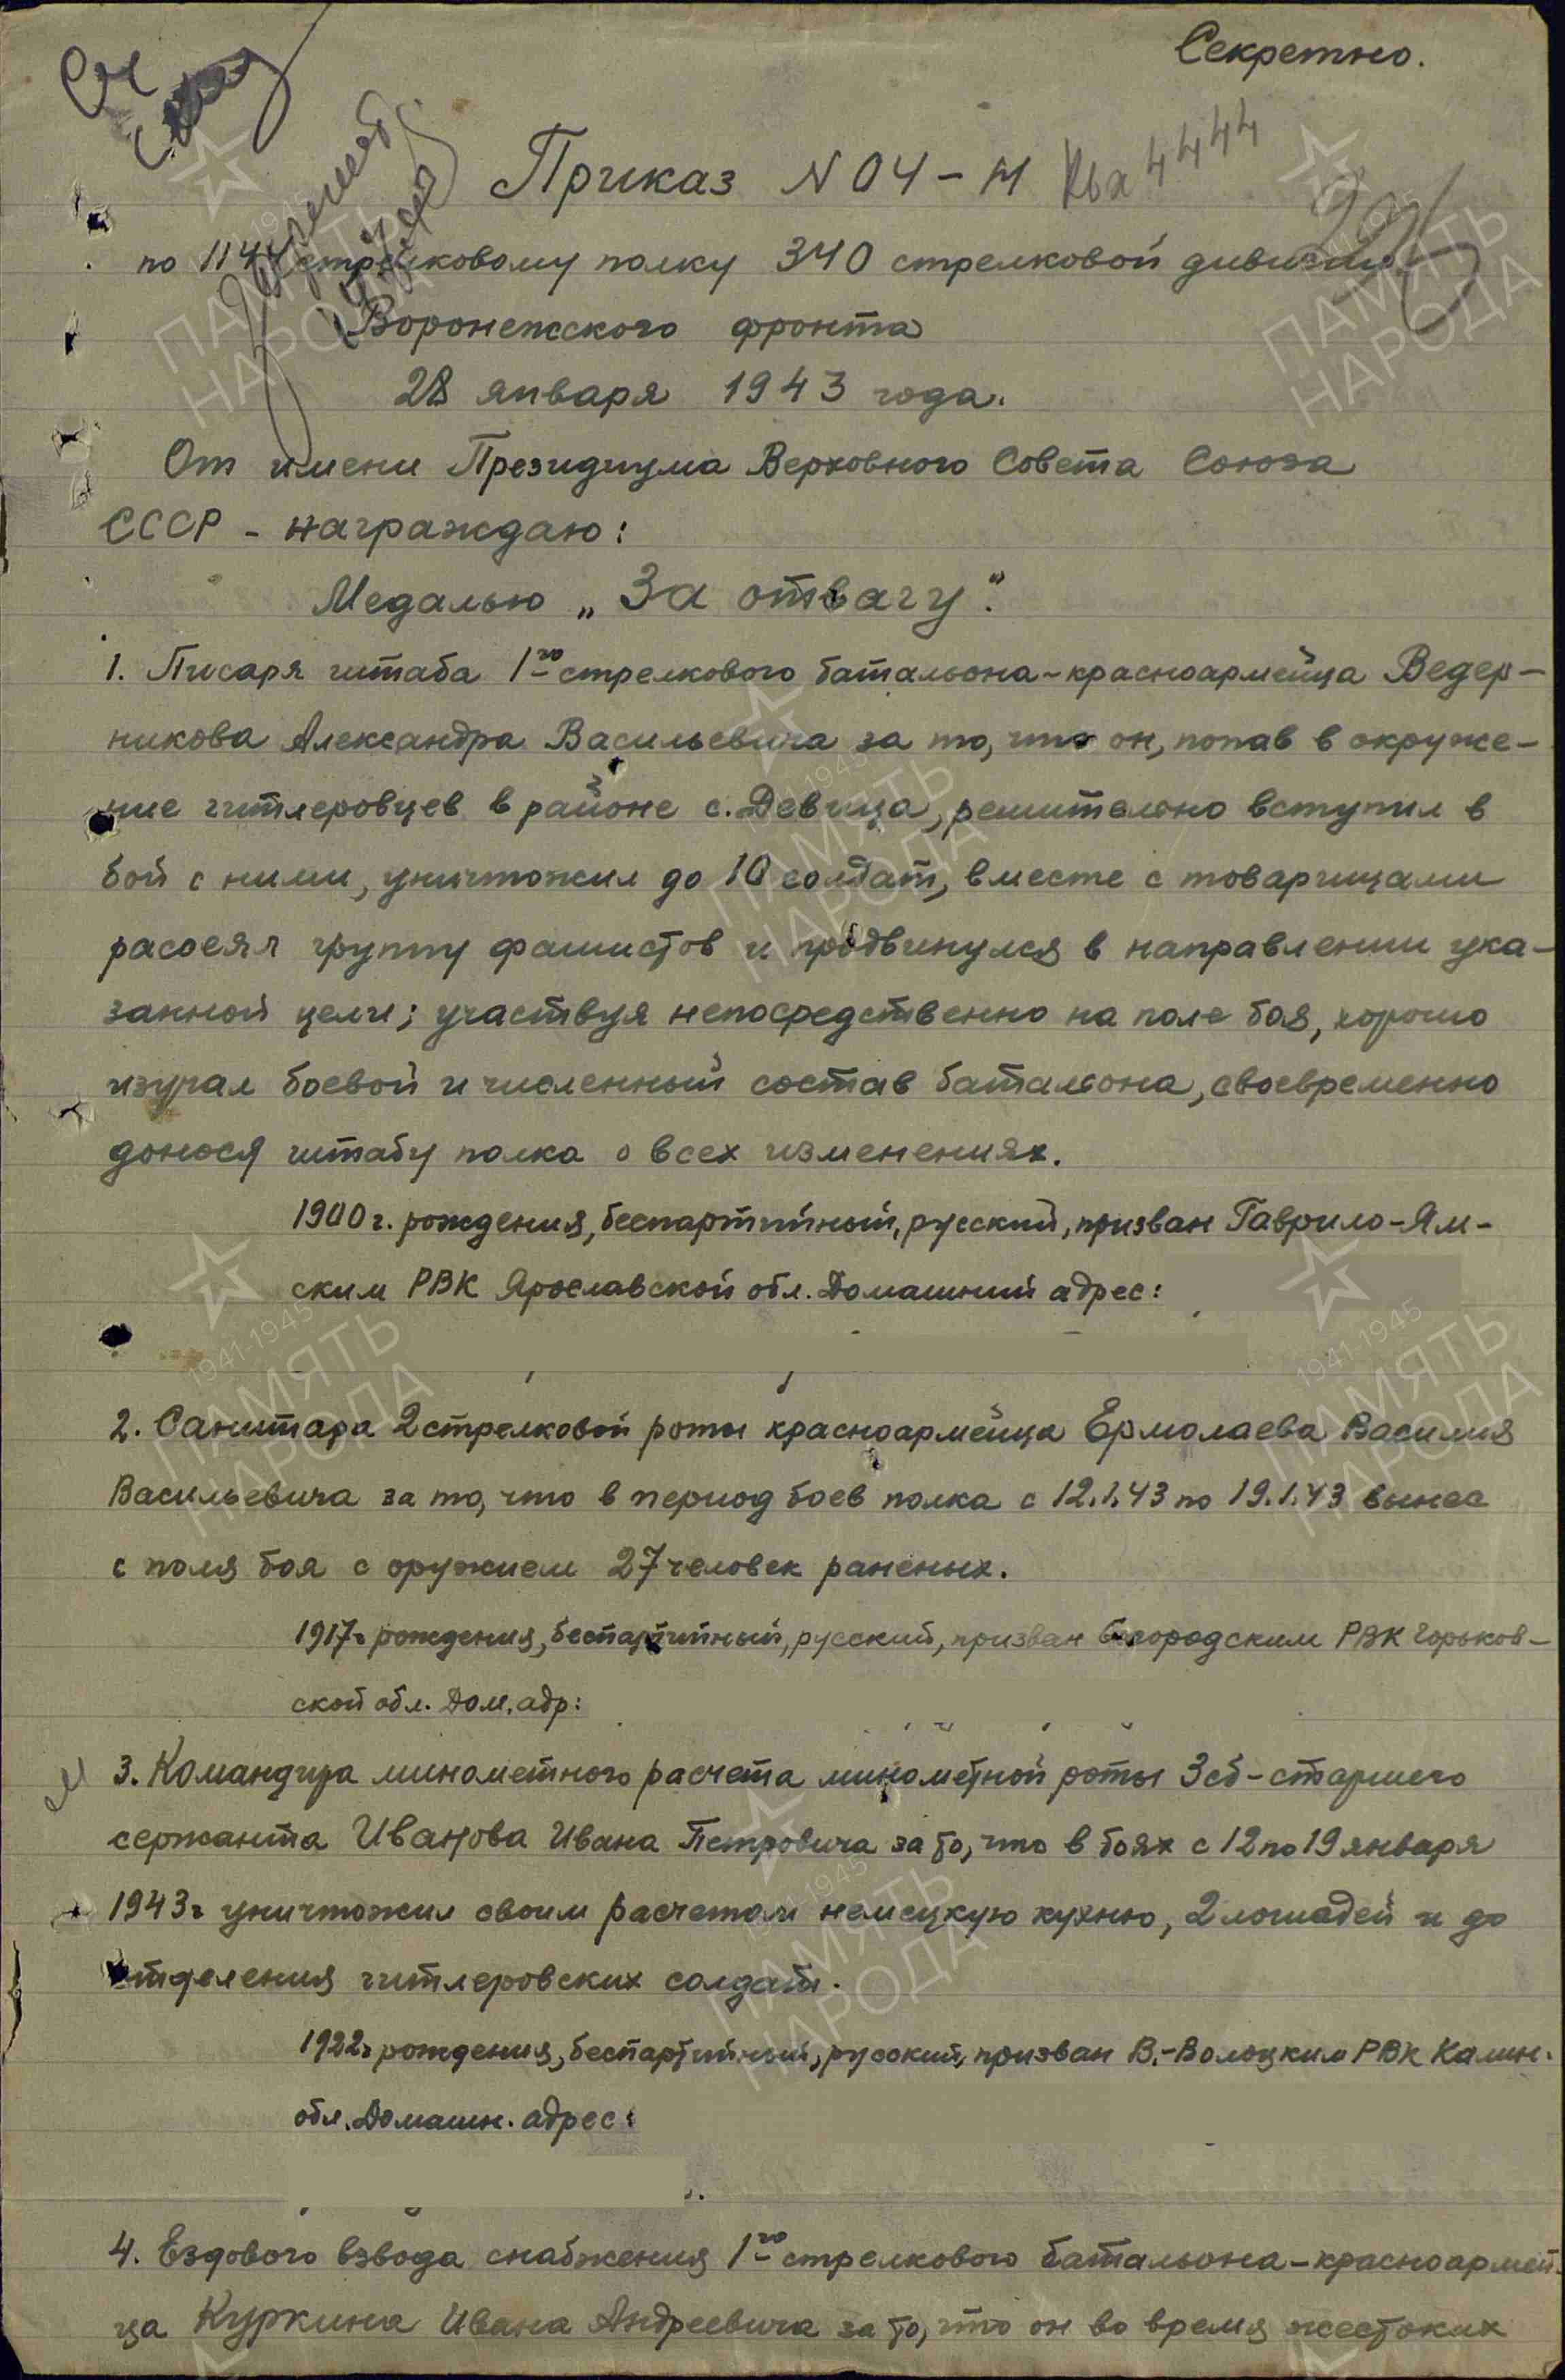 Секретно.
Приказ N 04-н Вх 4444
по 1144 стрелковому полку 340 стрелковой дивизии
Воронежского фронта
28 января 1943 года.
От имени Президиума Верховного Совета Союза
СССР - награждаю:
Медалью „За отвагу".
1. Писаря штаба 1го стрелкового батальона-красноармейца Ведер-
никова Александра Васильевича за то, что он, попав в окруже-
ние гитлеровцев в районе с. Девица, решительно вступил в
бой с ними, уничтожил до 10 солдат, вместе с товарищами
рассеял группу фашистов и продвинулся в направлении ука-
занной цели; участвуя непосредственно на поле боя, хорошо
изучал боевой и численный состав батальона, своевременно
донося штабу полка о всех изменениях.
1900 г. рождения, беспартийный, русский, призван Гаврило-Ям-
ским РВК Ярославской обл. Домашний адрес:
2. Санитара 2 стрелковой роты красноармейца Ермолаева Василия
Васильевича за то, что в период боев полка с 12.1.43 по 19.1.43 вынес
с поля боя с оружием 27 человек раненых.
1917 г рождения, беспартийный, русский, призван Богородским РВК Горьков-
ской обл. Дом. адр:
3. Командира минометного расчета минометной роты 3 сб - старшего
сержанта Иванова Ивана Петровича за то, что в боях с 12 по 19 января
1943 г уничтожил своим расчетом немецкую кухню, 2 лошадей и до
отделения гитлеровских солдат.
1922 г рождения, беспартийный, русский, призван В.-Волоцким РВК Калин.
обл. Домашн. адрес:
4. Ездового взвода снабжения 1го стрелкового батальона-красноармей-
ца Куркина Ивана Андреевича за то, что он во время жестоких
1941-1945
ПАМЯТЬ
НАРОДА